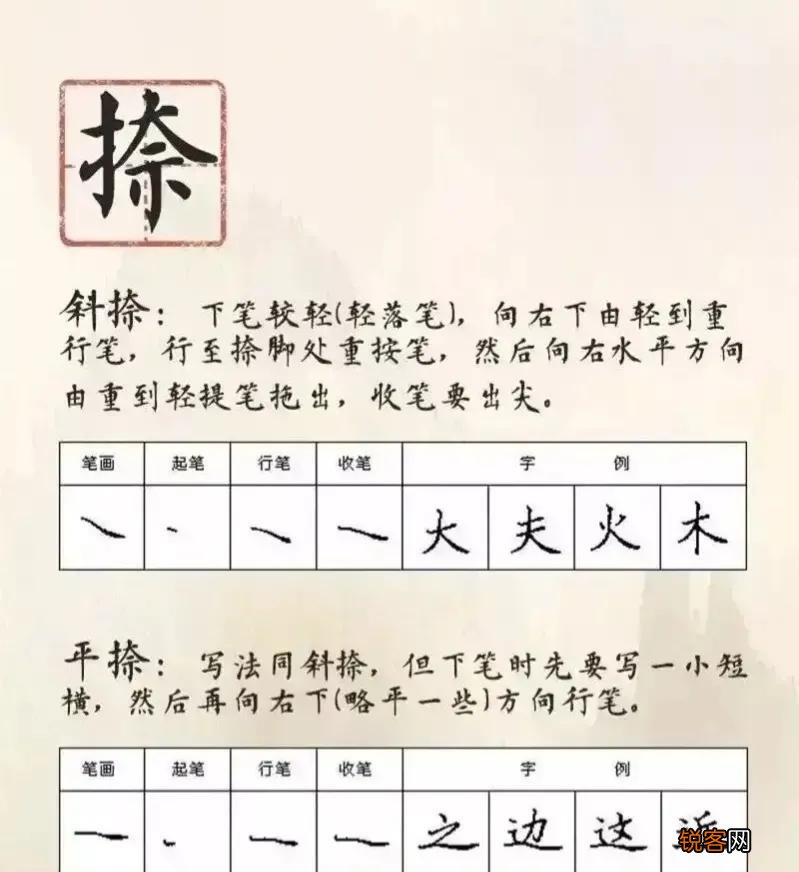 捺
斜捺：下笔较轻(轻落笔)，向右下由轻到重
行笔，行至捺脚处重按笔，然后向右水平方向
由重到轻提笔拖出，收笔要出尖。
笔画 起笔 行笔 收笔 字 例
大 夫 火 木
平捺：写法同斜捺，但下笔时先要写一小短
横，然后再向右下(略平一些)方向行笔。
笔画 起笔 行笔 收笔 字 例
之 边 这 近
锐客网